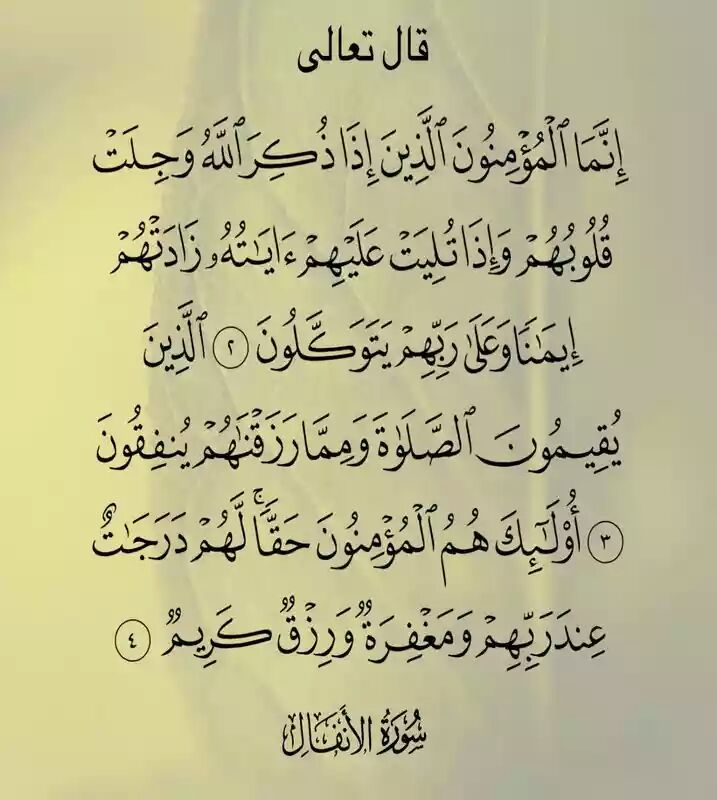 قال تعالى
إِنَّمَا ٱلْمُؤْمِنُونَ ٱلَّذِينَ إِذَا ذُكِرَ ٱللَّهُ وَجِلَتْ
قُلُوبُهُمْ وَإِذَا تُلِيَتْ عَلَيْهِمْ ءَايَٰتُهُۥ زَادَتْهُمْ
إِيمَٰنًا وَعَلَىٰ رَبِّهِمْ يَتَوَكَّلُونَ ٢ ٱلَّذِينَ
يُقِيمُونَ ٱلصَّلَوٰةَ وَمِمَّا رَزَقْنَٰهُمْ يُنفِقُونَ
٣ أُو۟لَٰٓئِكَ هُمُ ٱلْمُؤْمِنُونَ حَقًّا ۚ لَّهُمْ دَرَجَٰتٌ
عِندَ رَبِّهِمْ وَمَغْفِرَةٌ وَرِزْقٌ كَرِيمٌ ٤
سُورَةُ الأَنفَالِ